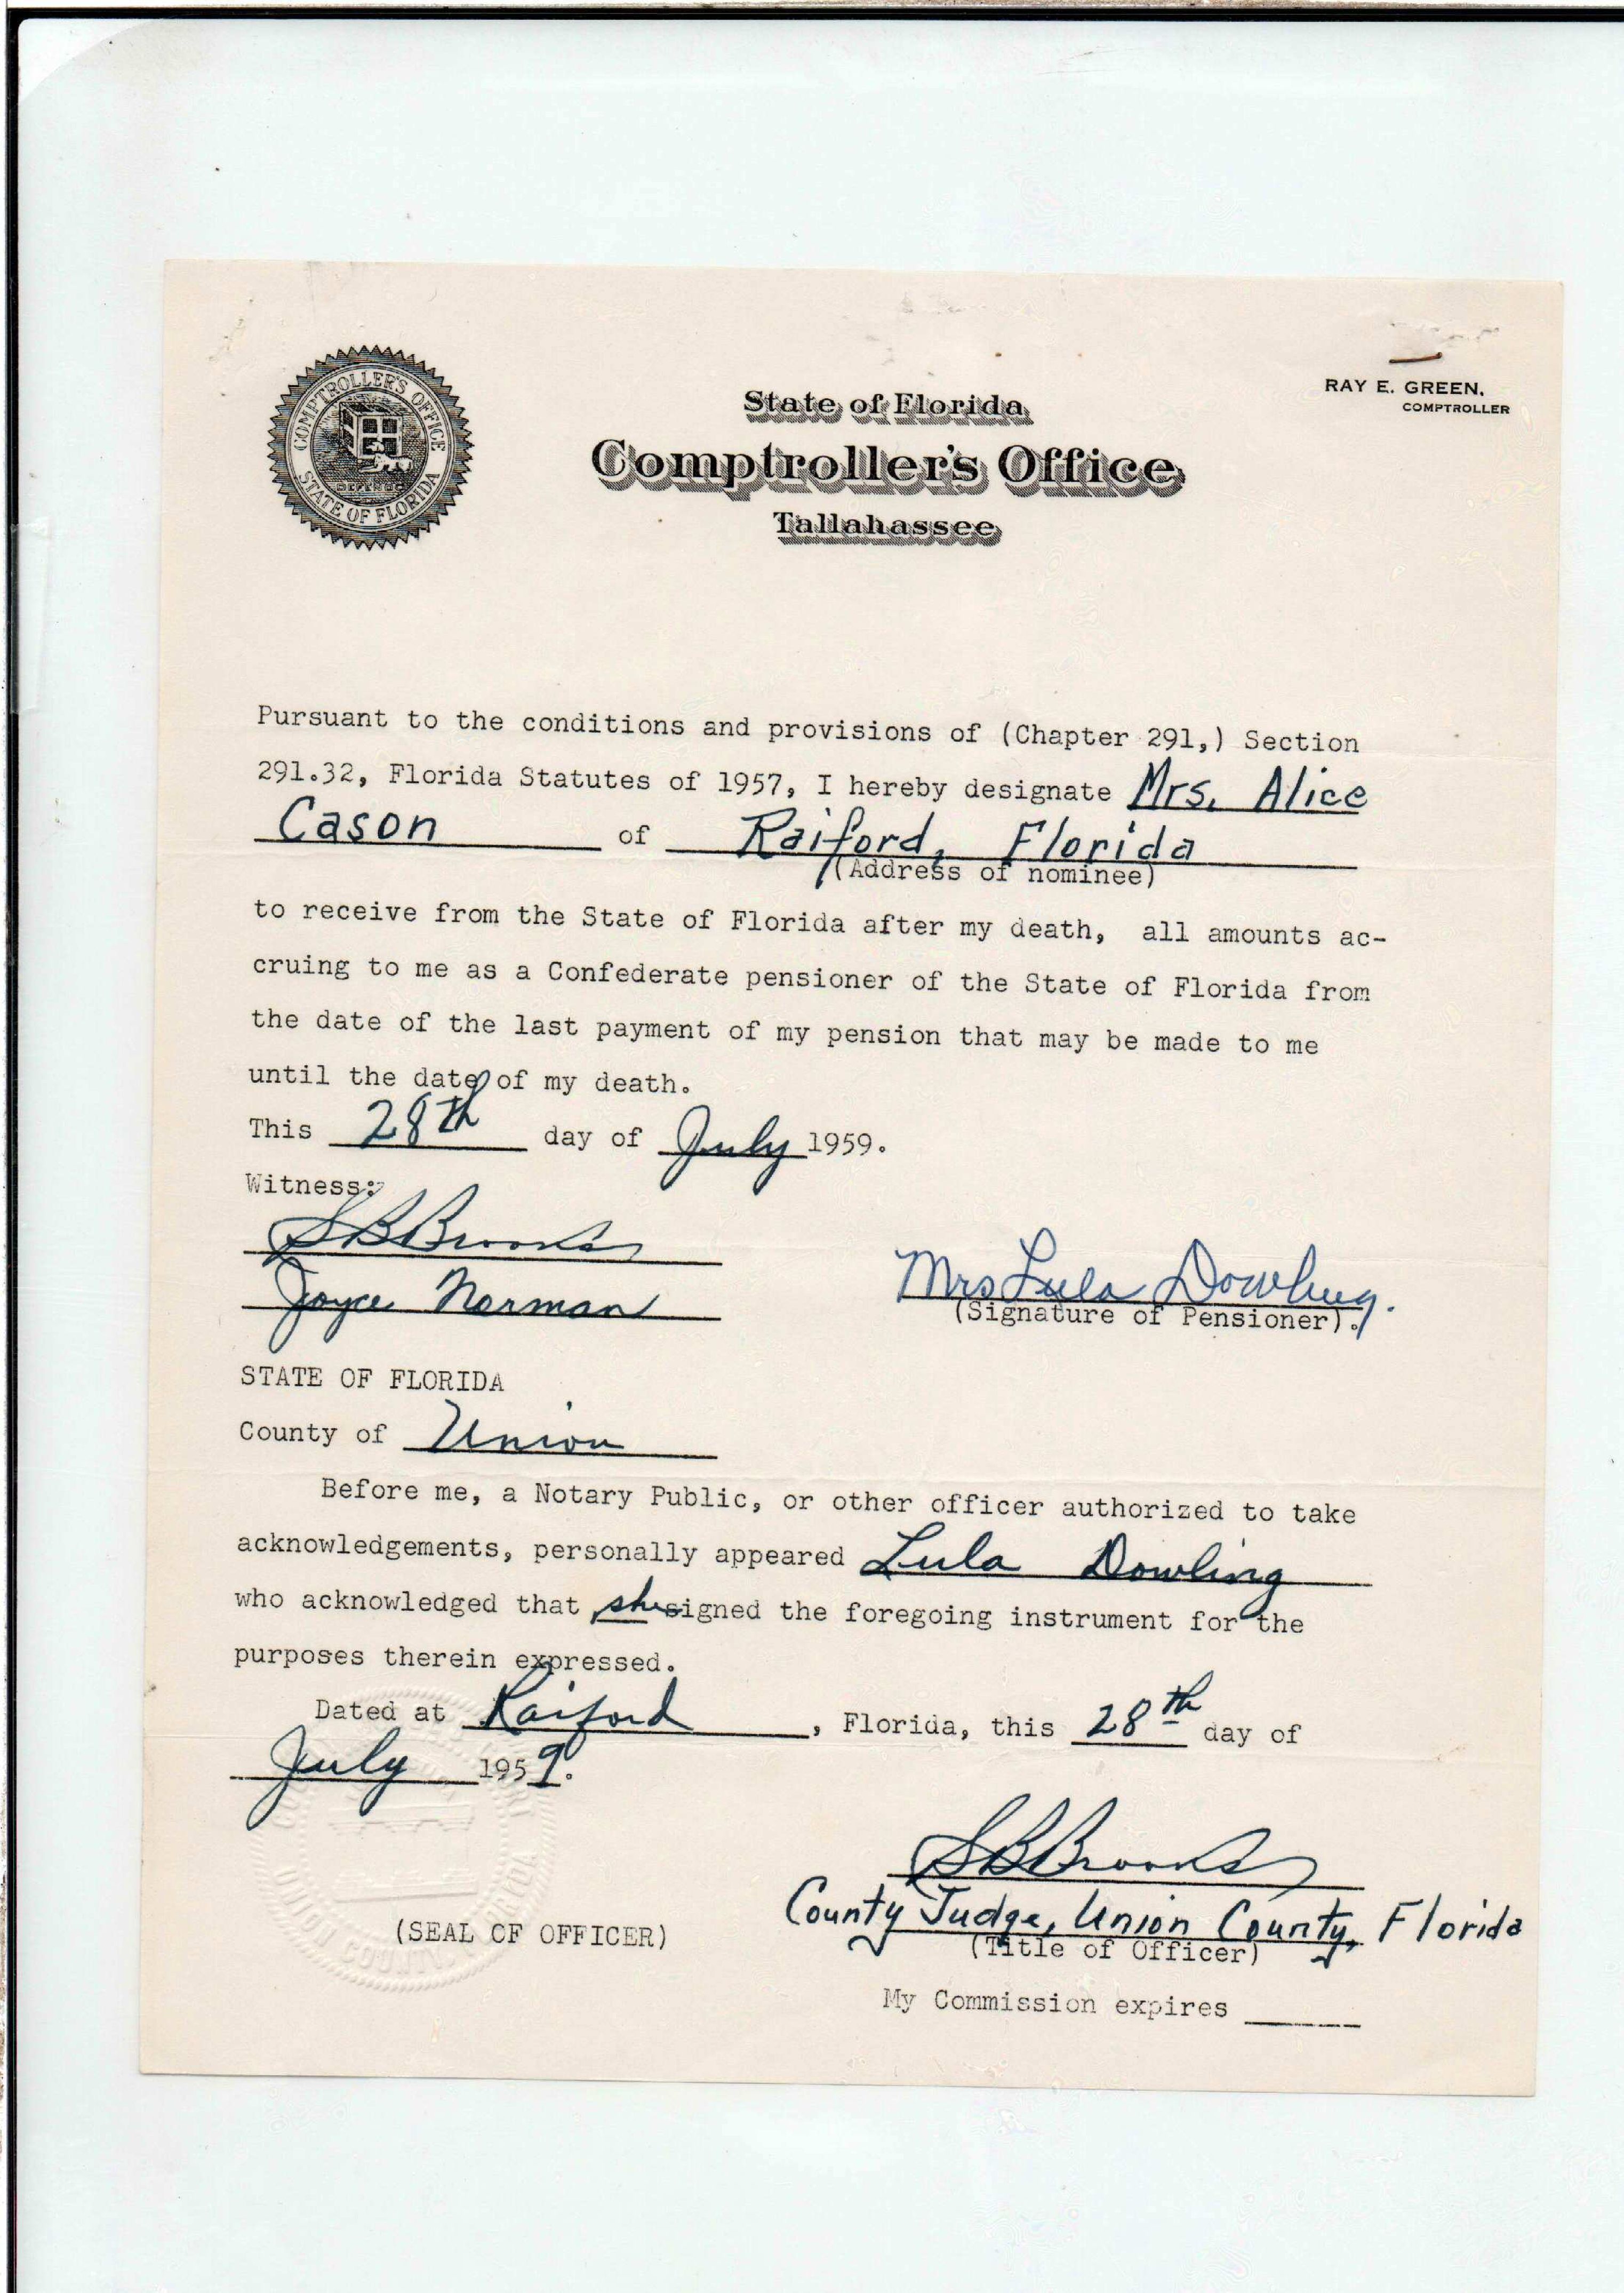 COMPTROLLER'S OFFICE
STATE OF FLORIDA
State of Florida
Comptroller's Office
Tallahassee
RAY E. GREEN,
COMPTROLLER
Pursuant to the conditions and provisions of (Chapter 291,) Section
291.32, Florida Statutes of 1957, I hereby designate Mrs. Alice
Cason of Raiford, Florida
(Address of nominee)
to receive from the State of Florida after my death, all amounts ac-
cruing to me as a Confederate pensioner of the State of Florida from
the date of the last payment of my pension that may be made to me
until the date of my death.
This 28th day of July 1959.
Witness:
S B Brooks
Joyce Norman
Mrs Lula Dowling.
(Signature of Pensioner).
STATE OF FLORIDA
County of Union
Before me, a Notary Public, or other officer authorized to take
acknowledgements, personally appeared Lula Dowling
who acknowledged that she signed the foregoing instrument for the
purposes therein expressed.
Dated at Raiford, Florida, this 28th day of
July 1959.
S B Brooks
County Judge, Union County, Florida
(SEAL OF OFFICER)
(Title of Officer)
UNION COUNTY,
My Commission expires